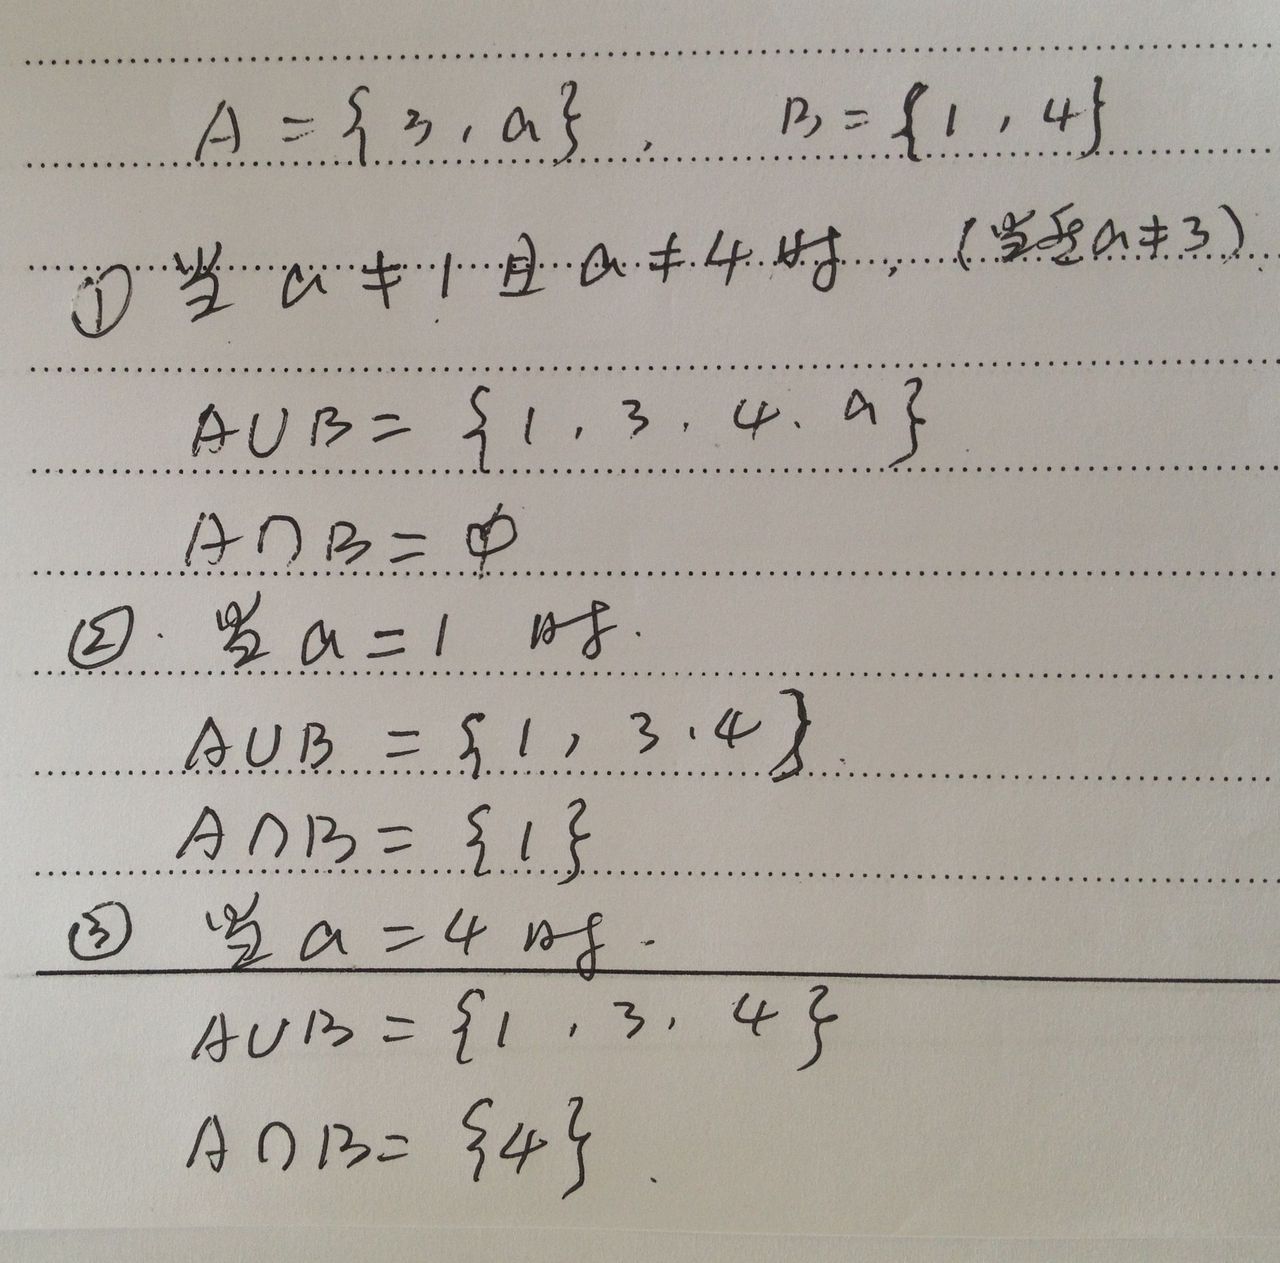 A = {3, a}, B = {1, 4}
① 当 a ≠ 1 且 a ≠ 4 时, (当然 a ≠ 3)
A∪B = {1, 3, 4, a}
A∩B = ∅
②. 当 a = 1 时.
A∪B = {1, 3, 4}.
A∩B = {1}
③ 当 a = 4 时.
A∪B = {1, 3, 4}
A∩B = {4}.